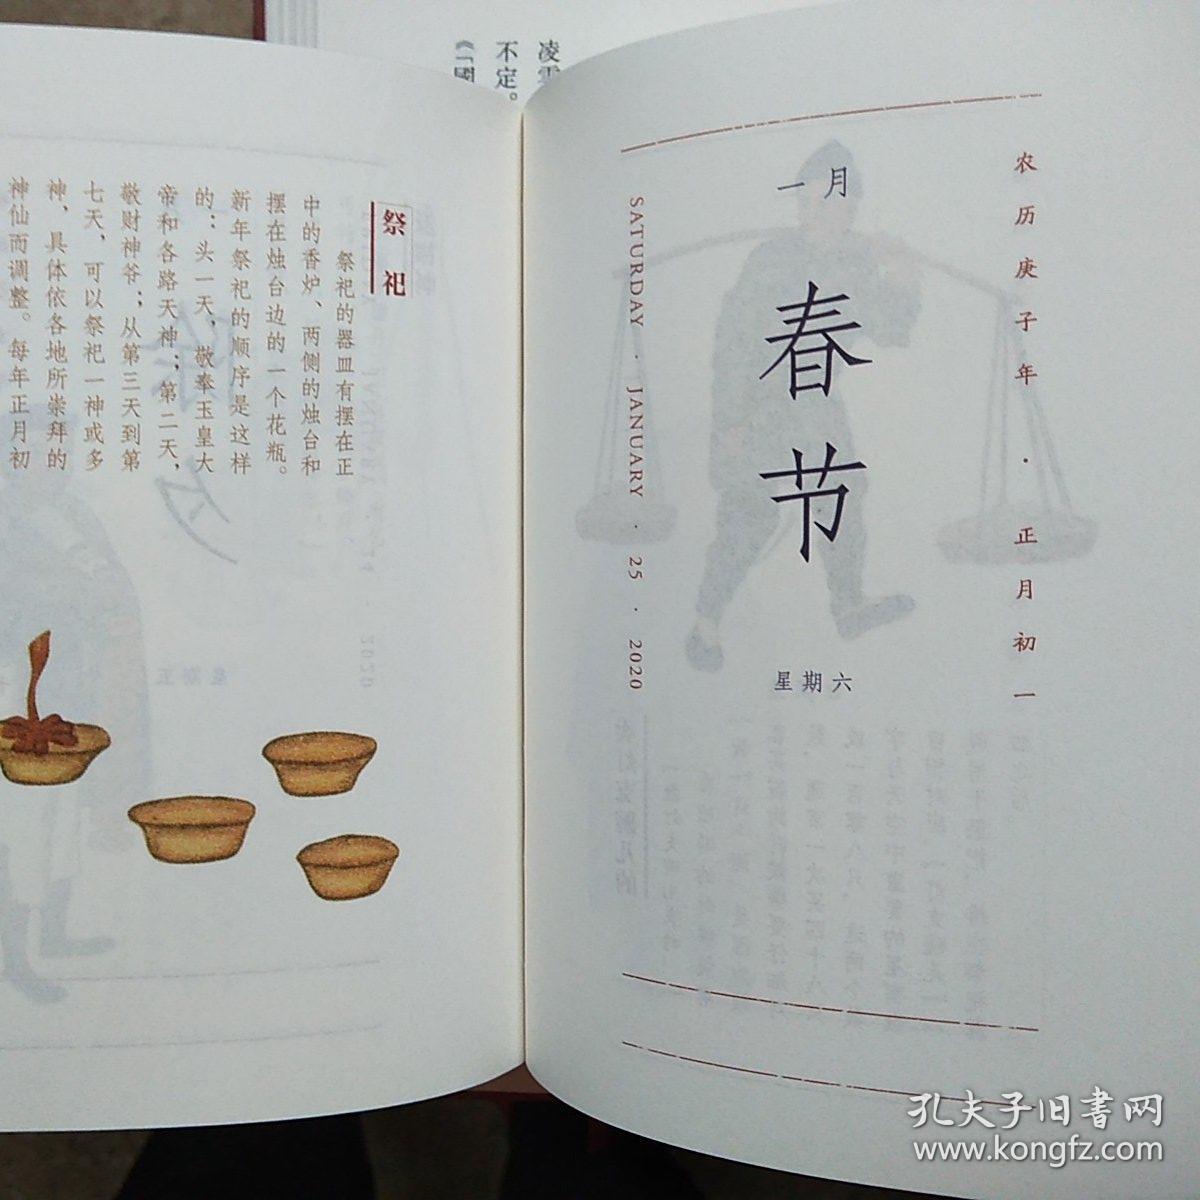 凌雲
不定。
《「國
祭祀
祭祀的器皿有摆在正
中的香炉、两侧的烛台和
摆在烛台边的一个花瓶。
新年祭祀的顺序是这样
的：头一天，敬奉玉皇大
帝和各路天神；第二天，
敬财神爷；从第三天到第
七天，可以祭祀一神或多
神，具体依各地所崇拜的
神仙而调整。每年正月初
农历庚子年·正月初一
一月
春节
星期六
SATURDAY · JANUARY · 25 · 2020
孔夫子旧书网
www.kongfz.com